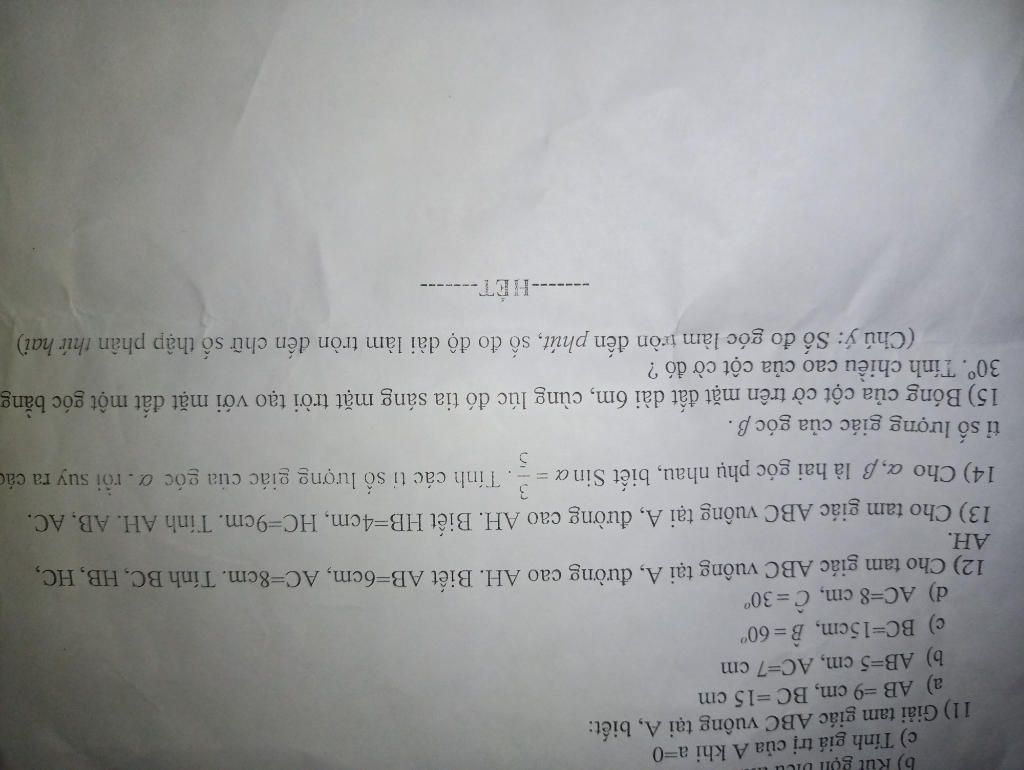 b) Rút gọn biểu
c) Tính giá trị của A khi a=0
11) Giải tam giác ABC vuông tại A, biết:
a) AB =9 cm, BC =15 cm
b) AB=5 cm, AC=7 cm
c) BC=15cm, B̂ = 60⁰
d) AC=8 cm, Ĉ = 30⁰
12) Cho tam giác ABC vuông tại A, đường cao AH. Biết AB=6cm, AC=8cm. Tính BC, HB, HC,
AH.
13) Cho tam giác ABC vuông tại A, đường cao AH. Biết HB=4cm, HC=9cm. Tính AH. AB, AC.
14) Cho α, β là hai góc phụ nhau, biết Sin α = 3/5. Tính các tỉ số lượng giác của góc α. rồi suy ra các
tỉ số lượng giác của góc β.
15) Bóng của cột cờ trên mặt đất dài 6m, cùng lúc đó tia sáng mặt trời tạo với mặt đất một góc bằng
30⁰. Tính chiều cao của cột cờ đó ?
(Chú ý: Số đo góc làm tròn đến phút, số đo độ dài làm tròn đến chữ số thập phân thứ hai)
-------HẾT-------